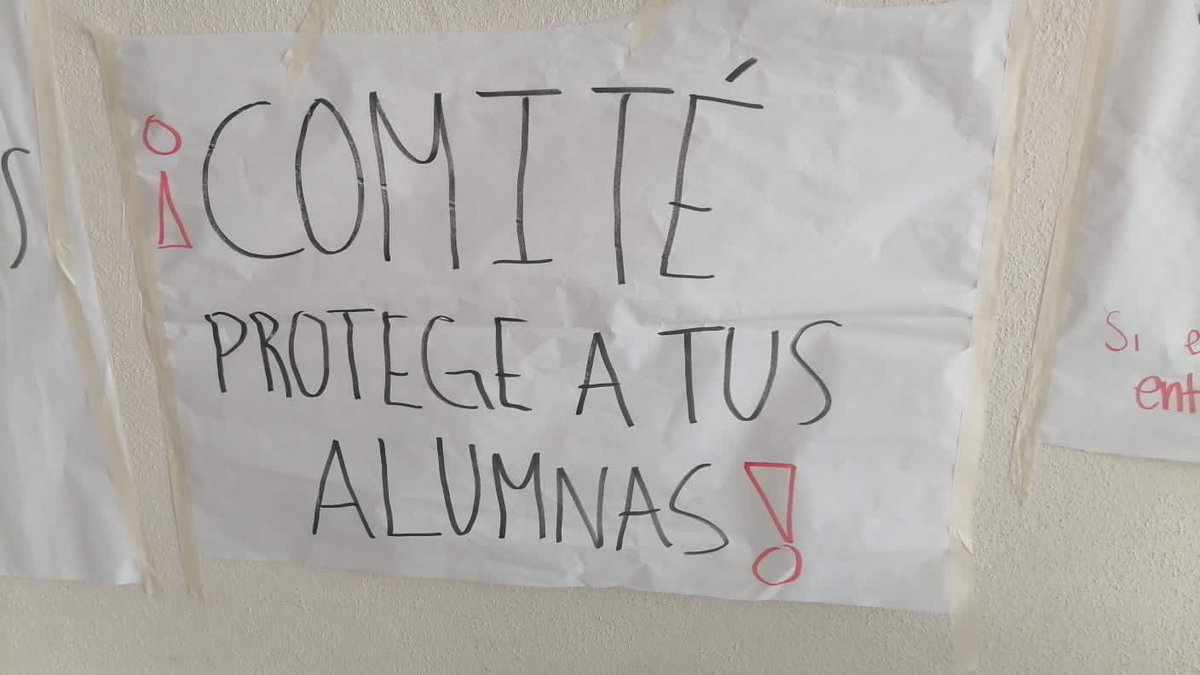 ¡COMITÉ
PROTEGE A TUS
ALUMNAS!
Si